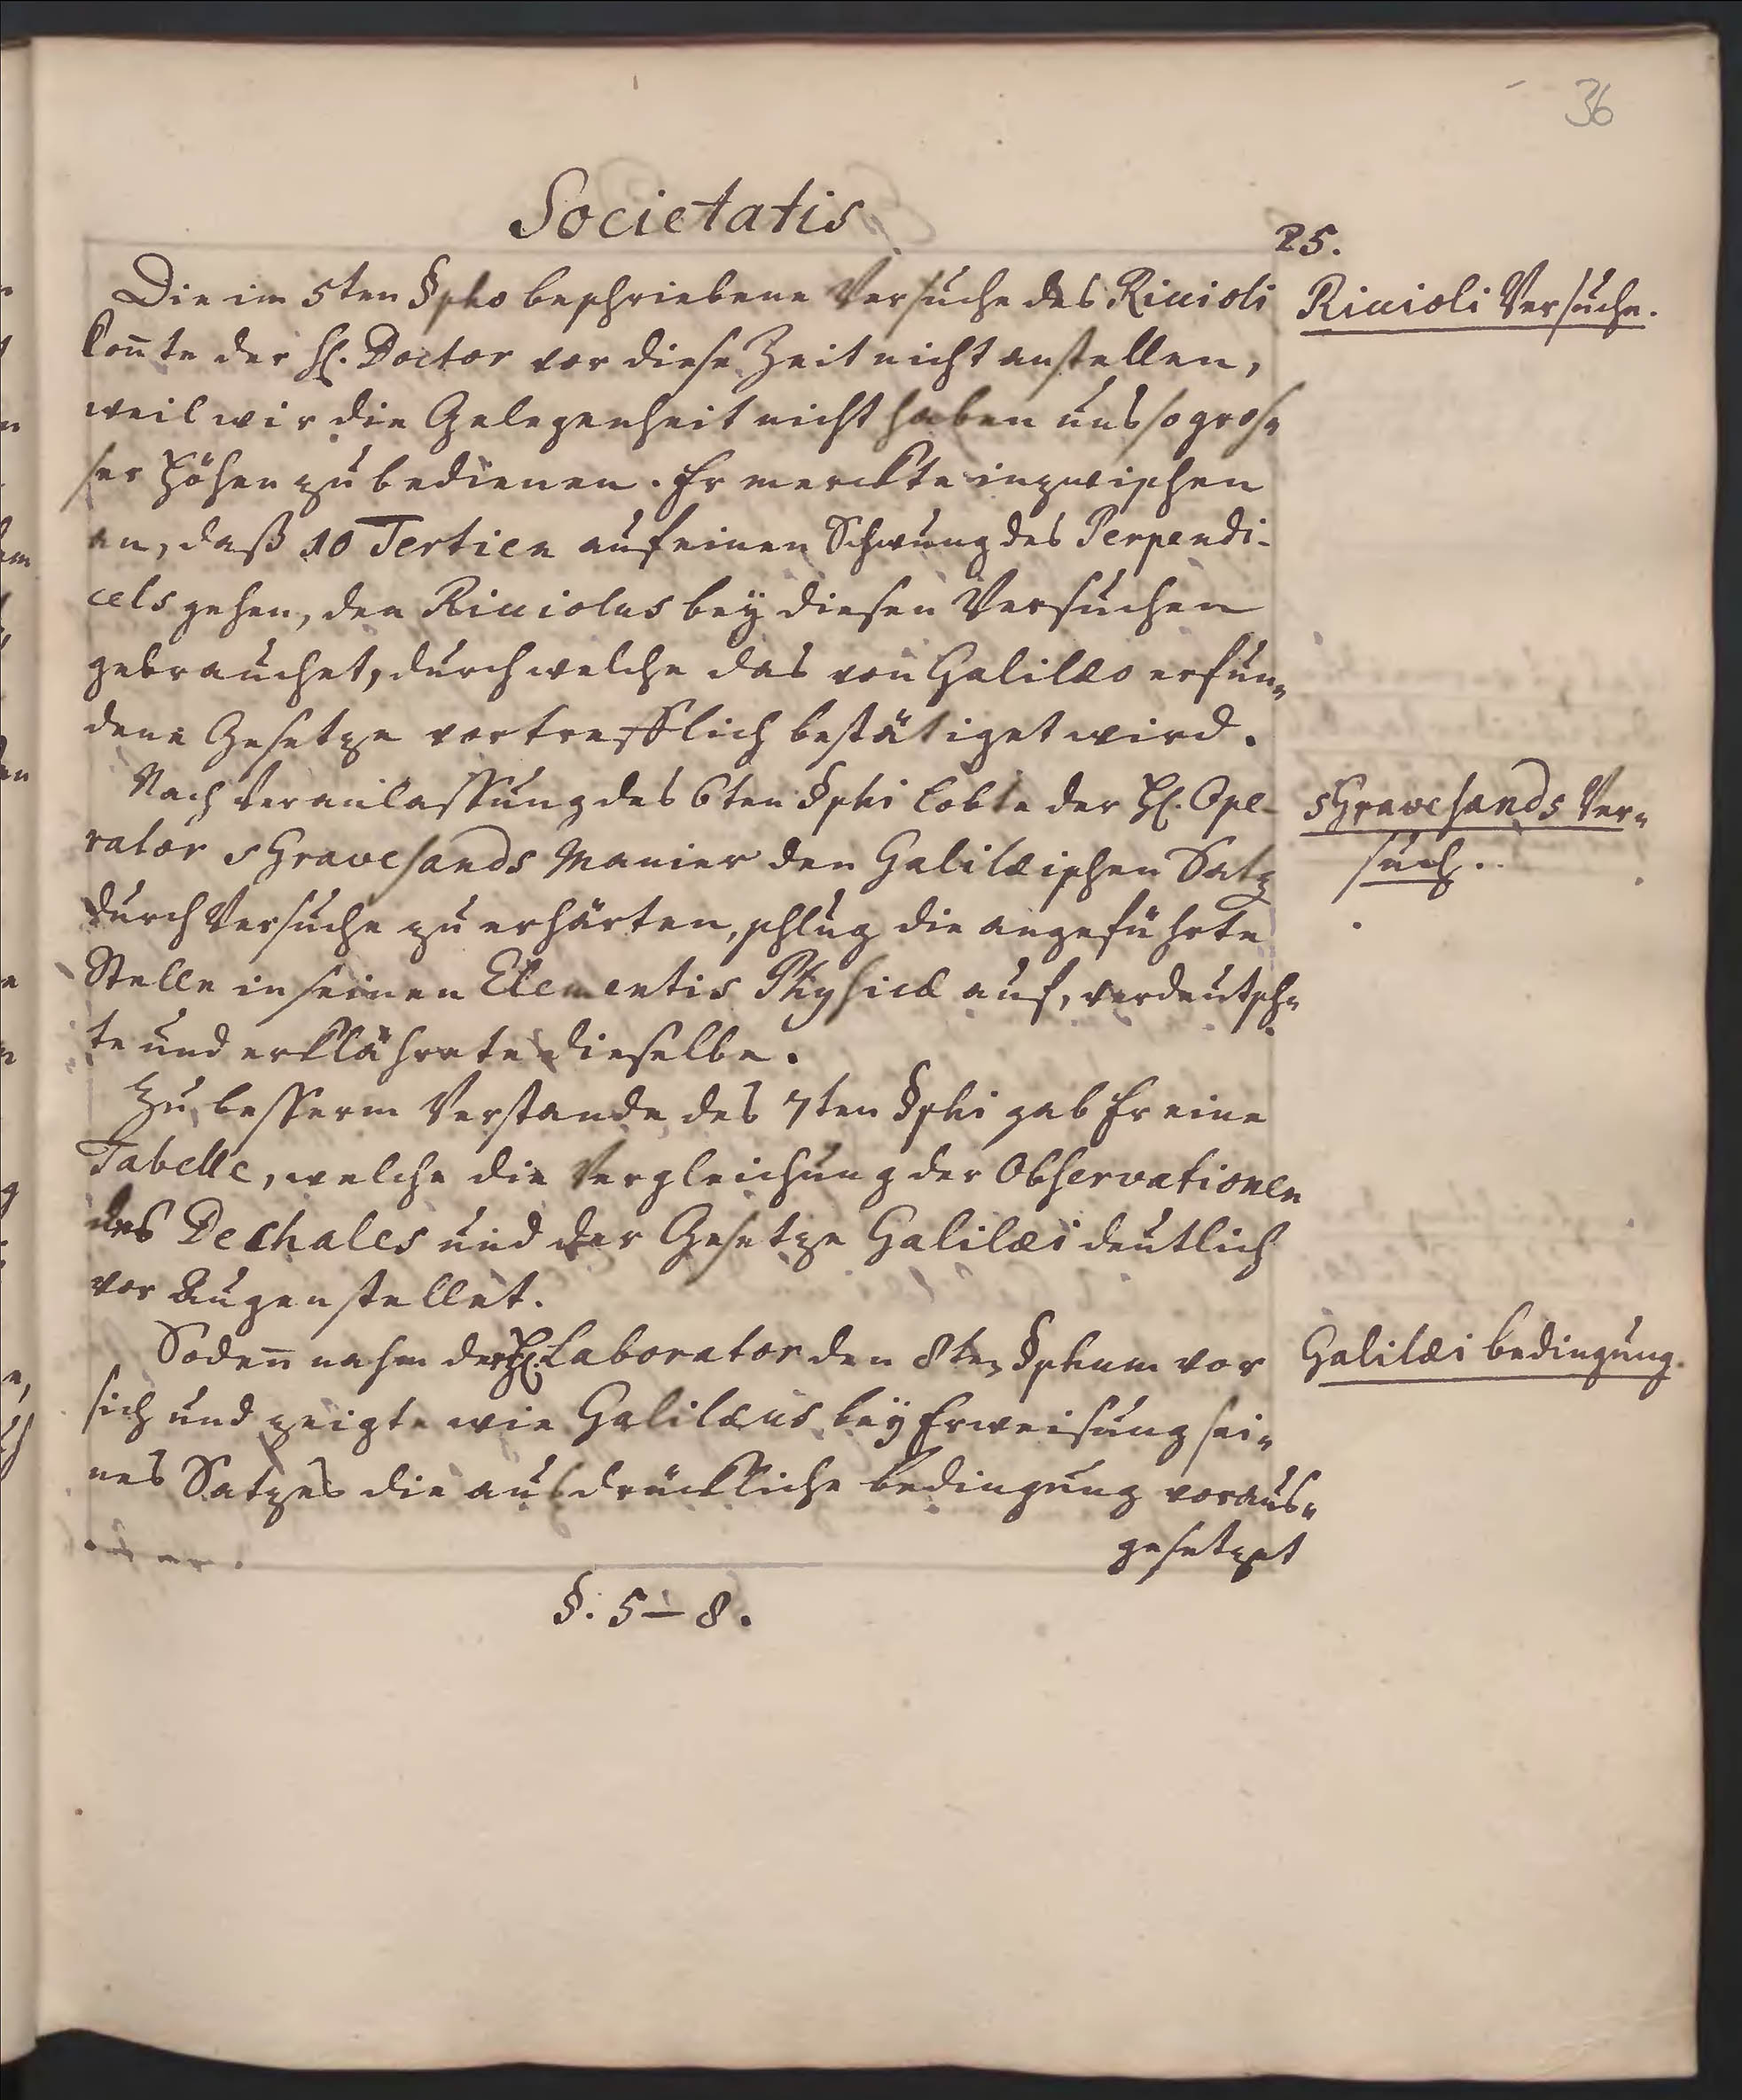 36
Societatis
25.
Die im 5ten §pho beschriebene Versuche des Riccioli
Riccioli Versuche.
konnte der H. Doctor vor diese Zeit nicht anstellen,
weil wir die Gelegenheit nicht haben uns so gros-
ser Höhen zu bedienen. Er merckte inzwischen
an, daß 10 Tertien auf einen Schwung des Perpendi-
cels gehen, den Ricciolus bey diesen Versuchen
gebrauchet, durch welche das von Galilæo erfun-
dene Gesetze vortrefflich bestätiget wird.
Nach Veranlassung des 6ten §phi lobte der H. Ope-
sGravesands Ver-
rator sGravesands Manier den Galilæischen Satz
such.
durch Versuche zu erhärten, schlug die angeführte
Stelle in seinen Elementis Physicæ auf, verdeutsch-
te und erklährete dieselbe.
Zu besserm Verstande des 7ten §phi gab Er eine
Tabelle, welche die Vergleichung der Observationen
des Dechales und der Gesetze Galilæi deutlich
vor Augen stellet.
Sodenn nahm der H. Laborator den 8ten §phum vor
Galilæi bedingung.
sich und zeigte wie Galilæus bey Erweisung sei-
nes Satzes die ausdrückliche bedingung voraus-
gesetzet
§. 5–8.